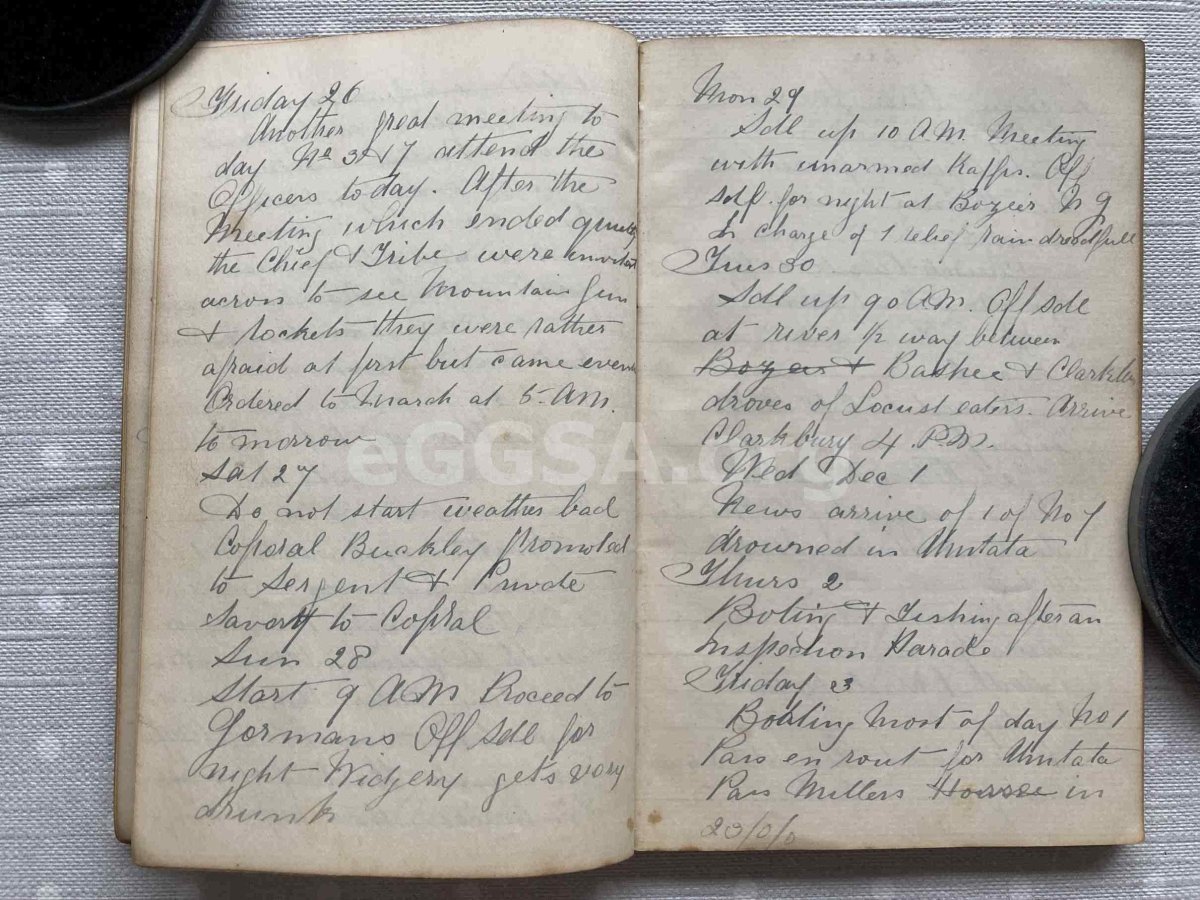 Friday 26
Another great meeting to
day No 3 & 7 attend the
Officers today. After the
Meeting which ended quietly
the Chief & Tribe were invited
across to see Mountain Gun
& Rockets they were rather
afraid at first but came even
Ordered to March at 5. AM.
to morrow
Sat 27
Do not start weather bad
Coporal Buckley Promoted
to Sergent & Private
Savory to Coporal
Sun 28
Start 9 AM Proceed to
Gormans Off Sdl for
night Widgery gets very
drunk
Mon 29
Sdl up 10 AM Meeting
with unarmed Kaffrs. Off
Sdl. for night at Bozeirs N g
In charge of 1 relief rain dreadfull
Tues 30
Sdl up 9 0 AM. Off Sdle
at river 1/2 way between
Bozeirs & Bashee & Clarkbu
droves of Locust eaters. Arrive
Clarkbury 4 P.M.
Wed Dec 1
News arrive of 1 of No 7
drowned in Umtata
Thurs 2
Boting & Fishing after an
Inspection Parade
Friday 3
Boating Most of day No 1
Pass en rout for Umtata
Pass Millers House in
20/0/0
eGGSA.org